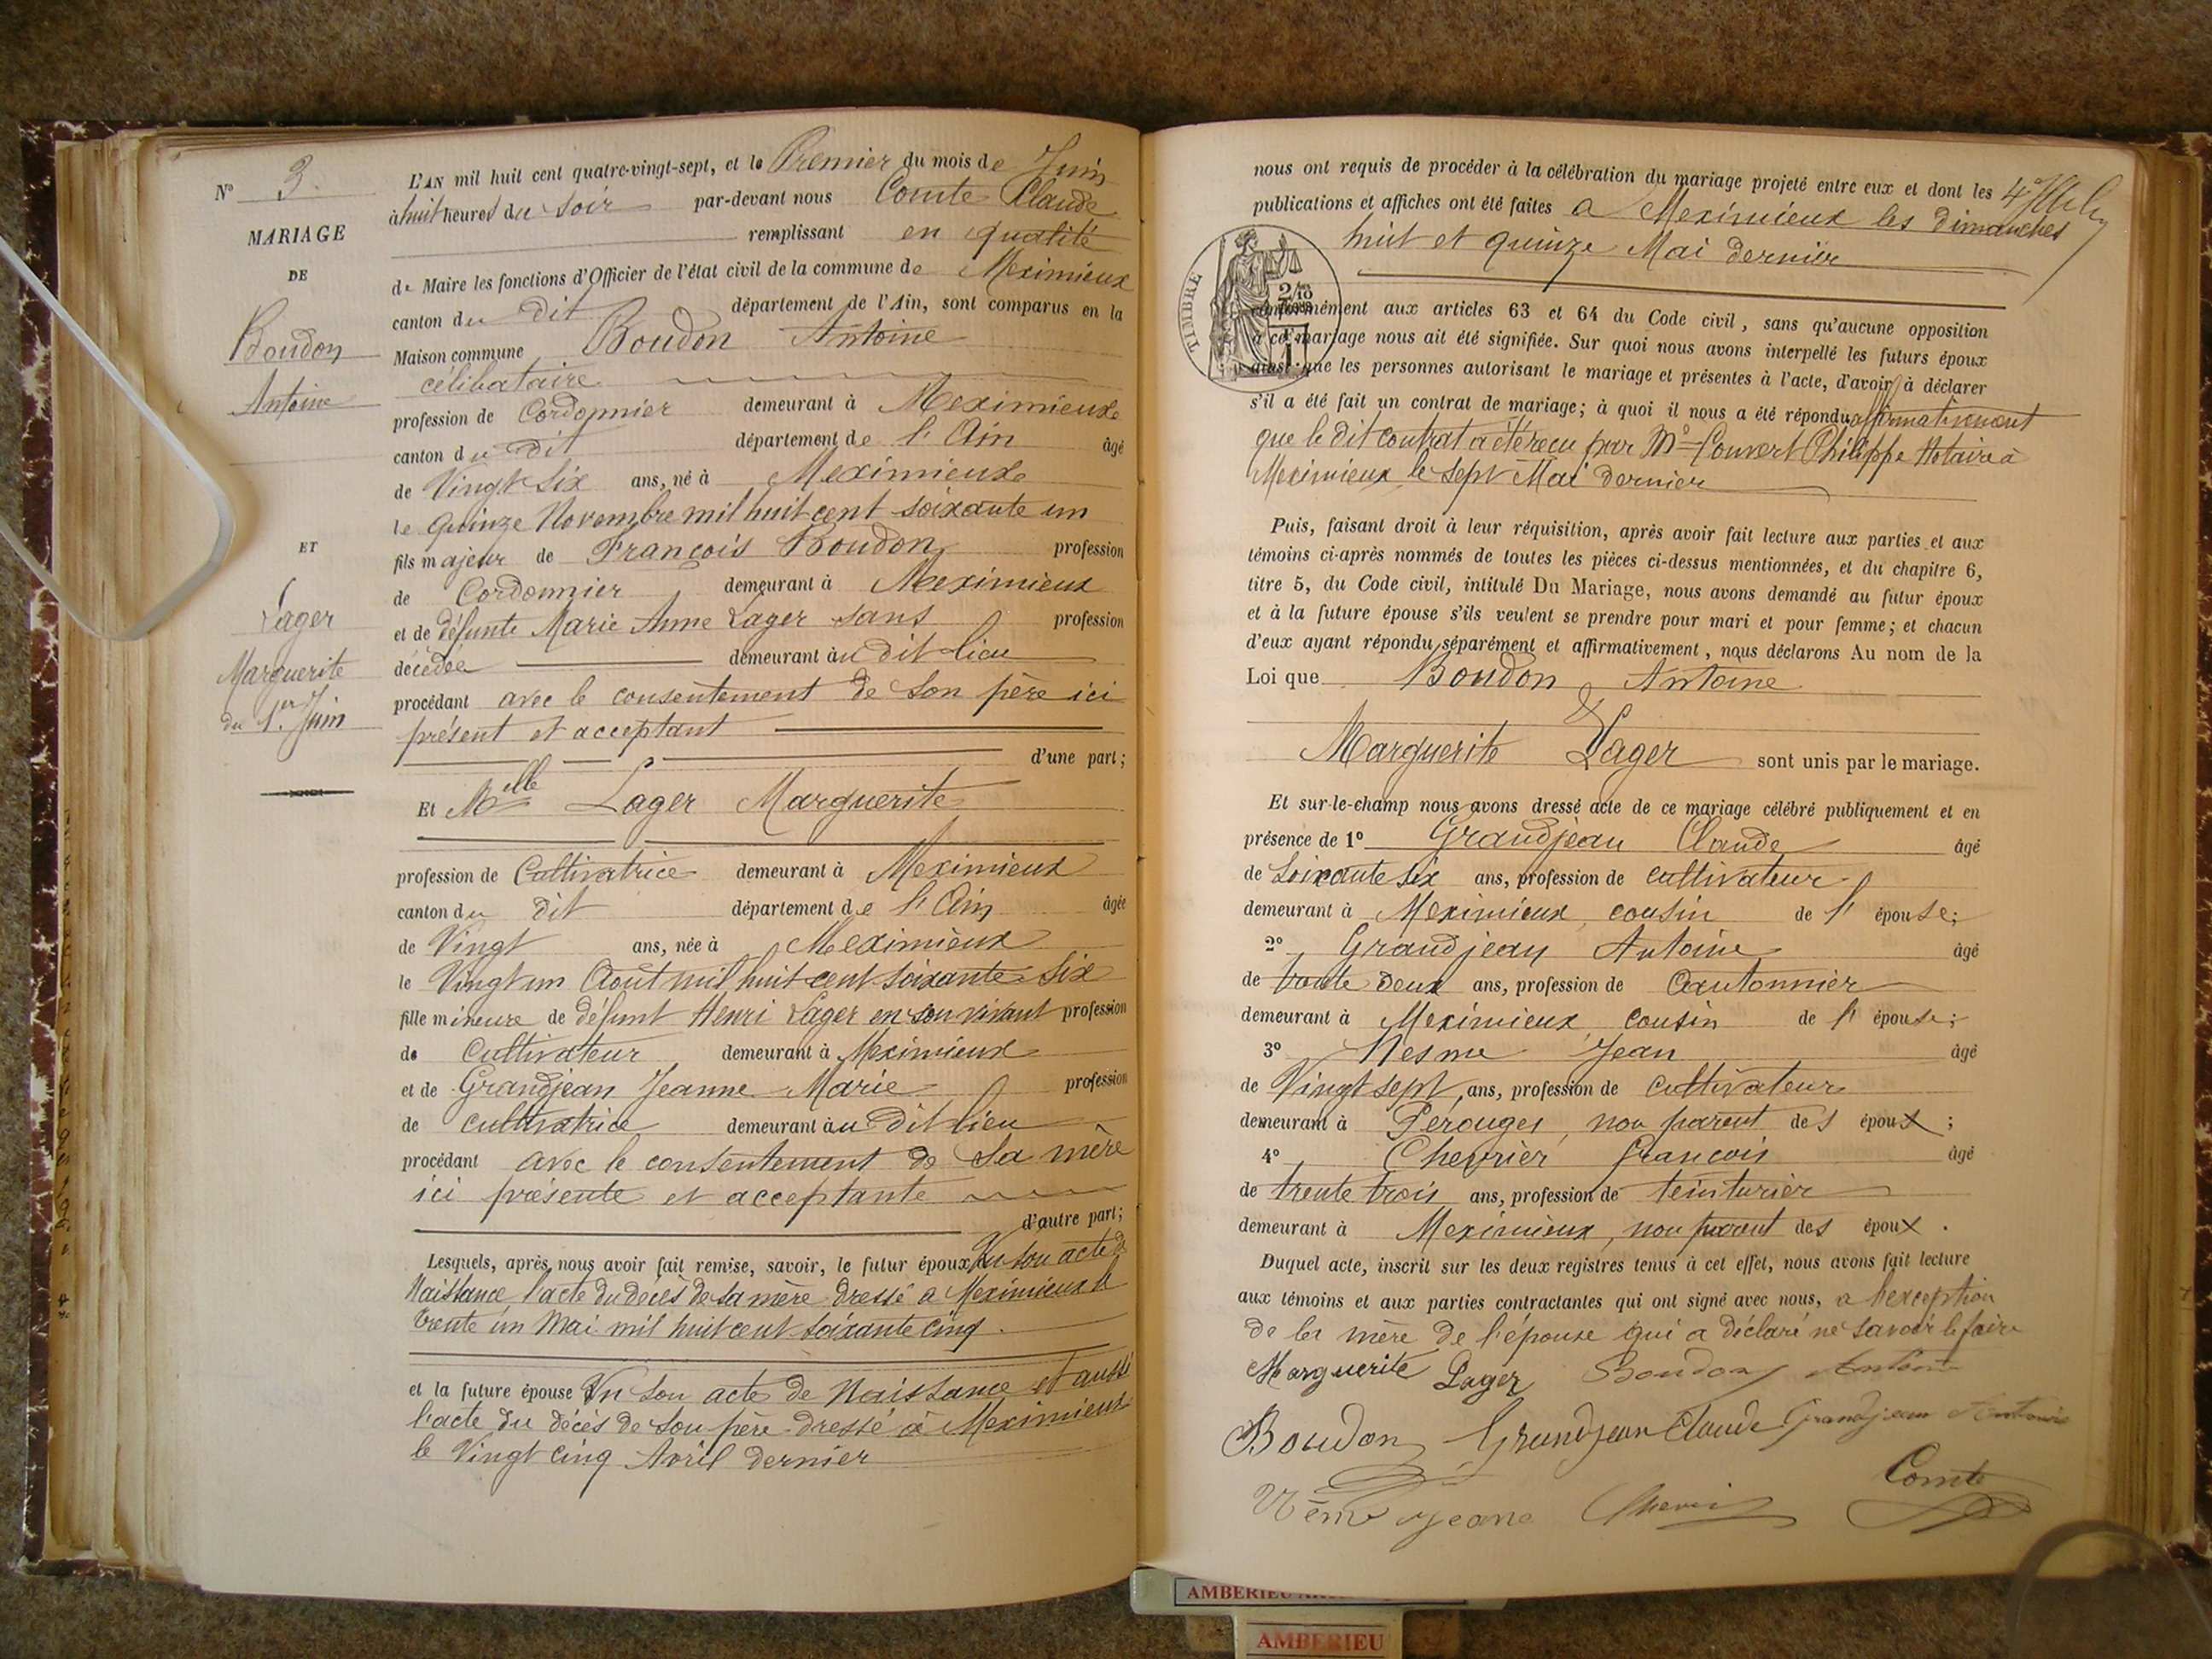 N° 3.
MARIAGE
DE
Boudon
Antoine
ET
Lager
Marguerite
du 1er Juin
L'AN mil huit cent quatre-vingt-sept, et le Premier du mois de Juin
à huit heures du soir par-devant nous Comte Claude
remplissant en qualité
de Maire les fonctions d'Officier de l'état civil de la commune de Meximieux
canton du dit département de l'Ain, sont comparus en la
Maison commune Boudon Antoine
célibataire
profession de Cordonnier demeurant à Meximieux
canton du dit département de l'Ain âgé
de Vingt six ans, né à Meximieux
le quinze Novembre mil huit cent soixante un
fils majeur de François Boudon profession
de Cordonnier demeurant à Meximieux
et de défunte Marie Anne Lager sans profession
décédée demeurant au dit lieu
procédant avec le consentement de son père ici
présent et acceptant
d'une part;
Et Melle Lager Marguerite
profession de Cultivatrice demeurant à Meximieux
canton du dit département de l'Ain âgée
de Vingt ans, née à Meximieux
le Vingt un Aout mil huit cent soixante six
fille mineure de défunt Henri Lager en son vivant profession
de Cultivateur demeurant à Meximieux
et de Grandjean Jeanne Marie profession
de cultivatrice demeurant au dit lieu
procédant avec le consentement de sa mère
ici présente et acceptante
d'autre part;
Lesquels, après nous avoir fait remise, savoir, le futur époux Vu son acte de
Naissance l'acte du décès de sa mère dressé à Meximieux le
trente un Mai mil huit cent soixante cinq.
et la future épouse Vu son acte de Naissance et aussi
l'acte du décès de son père dressé à Meximieux
le Vingt cinq Avril dernier
nous ont requis de procéder à la célébration du mariage projeté entre eux et dont les
publications et affiches ont été faites a Meximieux les dimanches
huit et quinze Mai dernier
TIMBRE
2/10
conformément aux articles 63 et 64 du Code civil, sans qu'aucune opposition
à ce mariage nous ait été signifiée. Sur quoi nous avons interpellé les futurs époux
ainsi que les personnes autorisant le mariage et présentes à l'acte, d'avoir à déclarer
s'il a été fait un contrat de mariage; à quoi il nous a été répondu affirmativement
que le dit contrat a été reçu par Me Convert Philippe Notaire à
Meximieux le sept Mai dernier
Puis, faisant droit à leur réquisition, après avoir fait lecture aux parties et aux
témoins ci-après nommés de toutes les pièces ci-dessus mentionnées, et du chapitre 6,
titre 5, du Code civil, intitulé Du Mariage, nous avons demandé au futur époux
et à la future épouse s'ils veulent se prendre pour mari et pour femme; et chacun
d'eux ayant répondu séparément et affirmativement, nous déclarons Au nom de la
Loi que Boudon Antoine
&
Marguerite Lager sont unis par le mariage.
Et sur-le-champ nous avons dressé acte de ce mariage célébré publiquement et en
présence de 1° Grandjean Claude âgé
de soixante six ans, profession de cultivateur
demeurant à Meximieux, cousin de l'épouse;
2° Grandjean Antoine âgé
de trente deux ans, profession de Cantonnier
demeurant à Meximieux cousin de l'épouse;
3° Nesme Jean âgé
de Vingt sept ans, profession de cultivateur
demeurant à Pérouges, non parent des époux;
4° Chevrier François âgé
de trente trois ans, profession de teinturier
demeurant à Meximieux, non parent des époux.
Duquel acte, inscrit sur les deux registres tenus à cet effet, nous avons fait lecture
aux témoins et aux parties contractantes qui ont signé avec nous, a l'exception
de la mère de l'épouse qui a déclaré ne savoir le faire
Marguerite Lager Boudon Antoine
Boudon Grandjean Claude Grandjean Antoine
Jeane Comte
AMBERIEU
AMBERIEU